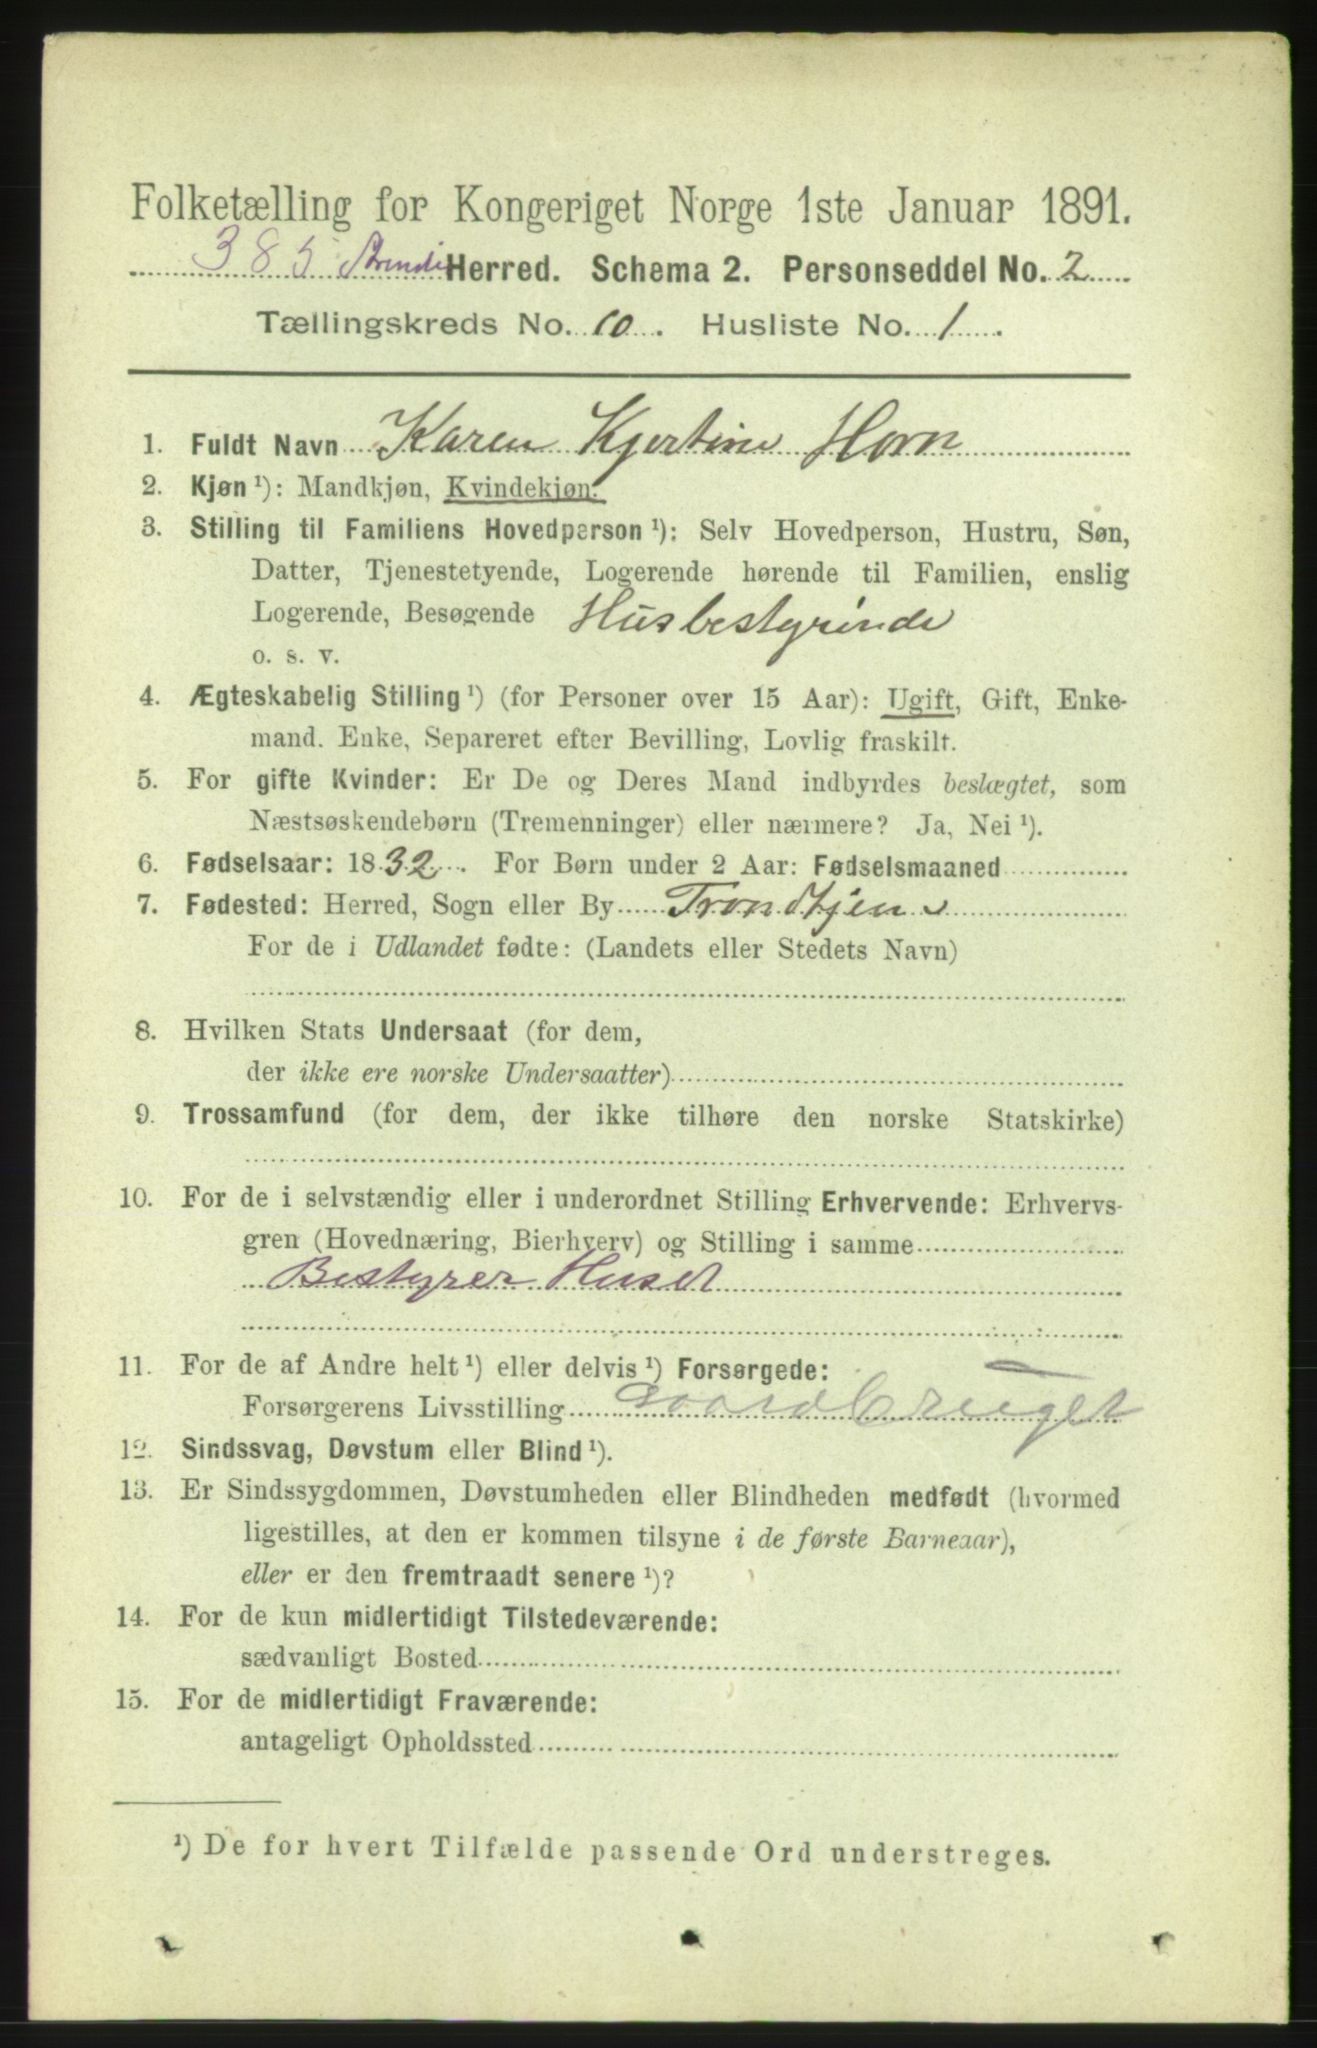 Folketælling for Kongeriget Norge 1ste Januar 1891.
385 Strinde Herred. Schema 2. Personseddel No. 2
Tællingskreds No. 10. Husliste No. 1.
1. Fuldt Navn Karen Kjertine Horn
2. Kjøn ¹): Mandkjøn, Kvindekjøn.
3. Stilling til Familiens Hovedperson ¹): Selv Hovedperson, Hustru, Søn,
Datter, Tjenestetyende, Logerende hørende til Familien, enslig
Logerende, Besøgende Husbestyrinde
o. s. v.
4. Ægteskabelig Stilling ¹) (for Personer over 15 Aar): Ugift, Gift, Enke-
mand. Enke, Separeret efter Bevilling, Lovlig fraskilt.
5. For gifte Kvinder: Er De og Deres Mand indbyrdes beslægtet, som
Næstsøskendebørn (Tremenninger) eller nærmere? Ja, Nei ¹).
6. Fødselsaar: 1832. For Børn under 2 Aar: Fødselsmaaned
7. Fødested: Herred, Sogn eller By Trondhjem
For de i Udlandet fødte: (Landets eller Stedets Navn)
8. Hvilken Stats Undersaat (for dem,
der ikke ere norske Undersaatter)
9. Trossamfund (for dem, der ikke tilhøre den norske Statskirke)
10. For de i selvstændig eller i underordnet Stilling Erhvervende: Erhvervs-
gren (Hovednæring, Bierhverv) og Stilling i samme
Bestyrer Huset
11. For de af Andre helt ¹) eller delvis ¹) Forsørgede:
Forsørgerens Livsstilling
12. Sindssvag, Døvstum eller Blind ¹).
13. Er Sindssygdommen, Døvstumheden eller Blindheden medfødt (hvormed
ligestilles, at den er kommen tilsyne i de første Barneaar),
eller er den fremtraadt senere ¹)?
14. For de kun midlertidigt Tilstedeværende:
sædvanligt Bosted
15. For de midlertidigt Fraværende:
antageligt Opholdssted
¹) De for hvert Tilfælde passende Ord understreges.